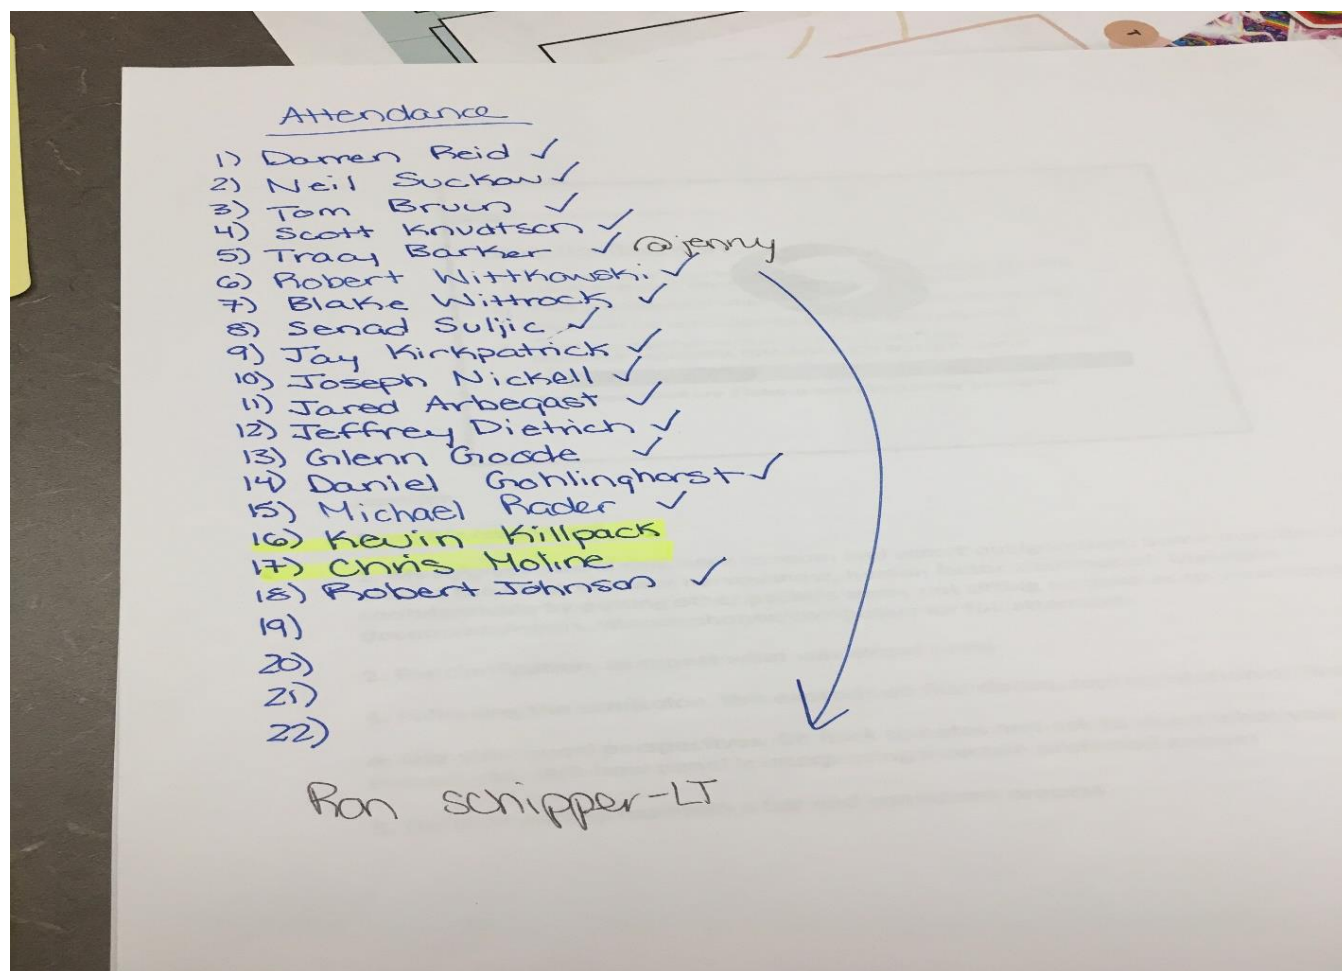 Attendance
1) Darren Reid ✓
2) Neil Suckow ✓
3) Tom Bruun ✓
4) Scott Knudtson ✓
5) Tracy Barker ✓ @jenny
6) Robert Wittkowski ✓
7) Blake Wittrock ✓
8) Senad Suljic ✓
9) Jay Kirkpatrick ✓
10) Joseph Nickell ✓
11) Jared Arbegast ✓
12) Jeffrey Dietrich ✓
13) Glenn Goode ✓
14) Daniel Gohlinghorst ✓
15) Michael Rader ✓
16) Kevin Killpack
17) Chris Moline
18) Robert Johnson ✓
19)
20)
21)
22)
Ron schipper-LT